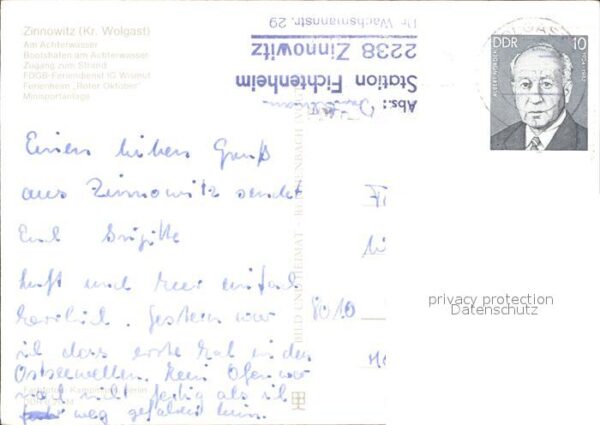 Zinnowitz (Kr. Wolgast)
Am Achterwasser
Bootshafen am Achterwasser
Zugang zum Strand
FDGB-Feriendienst IG Wismut
Ferienheim „Roter Oktober"
Minisportanlage
Abs.:
Station Fichtenheim
2238 Zinnowitz
Dr. Wachsmannstr. 29
DDR 10
Einen lieben Gruß
aus Zinnowitz sendet
Euch Brigitte
Luft und Meer einfach
herrlich. Gestern war
ich das erste Mal in den
Ostseewellen. Kein Ofen war
noch nicht fertig als ich
weg gefahren bin.
8010
BILD UND HEIMAT REICHENBACH
privacy protection
Datenschutz